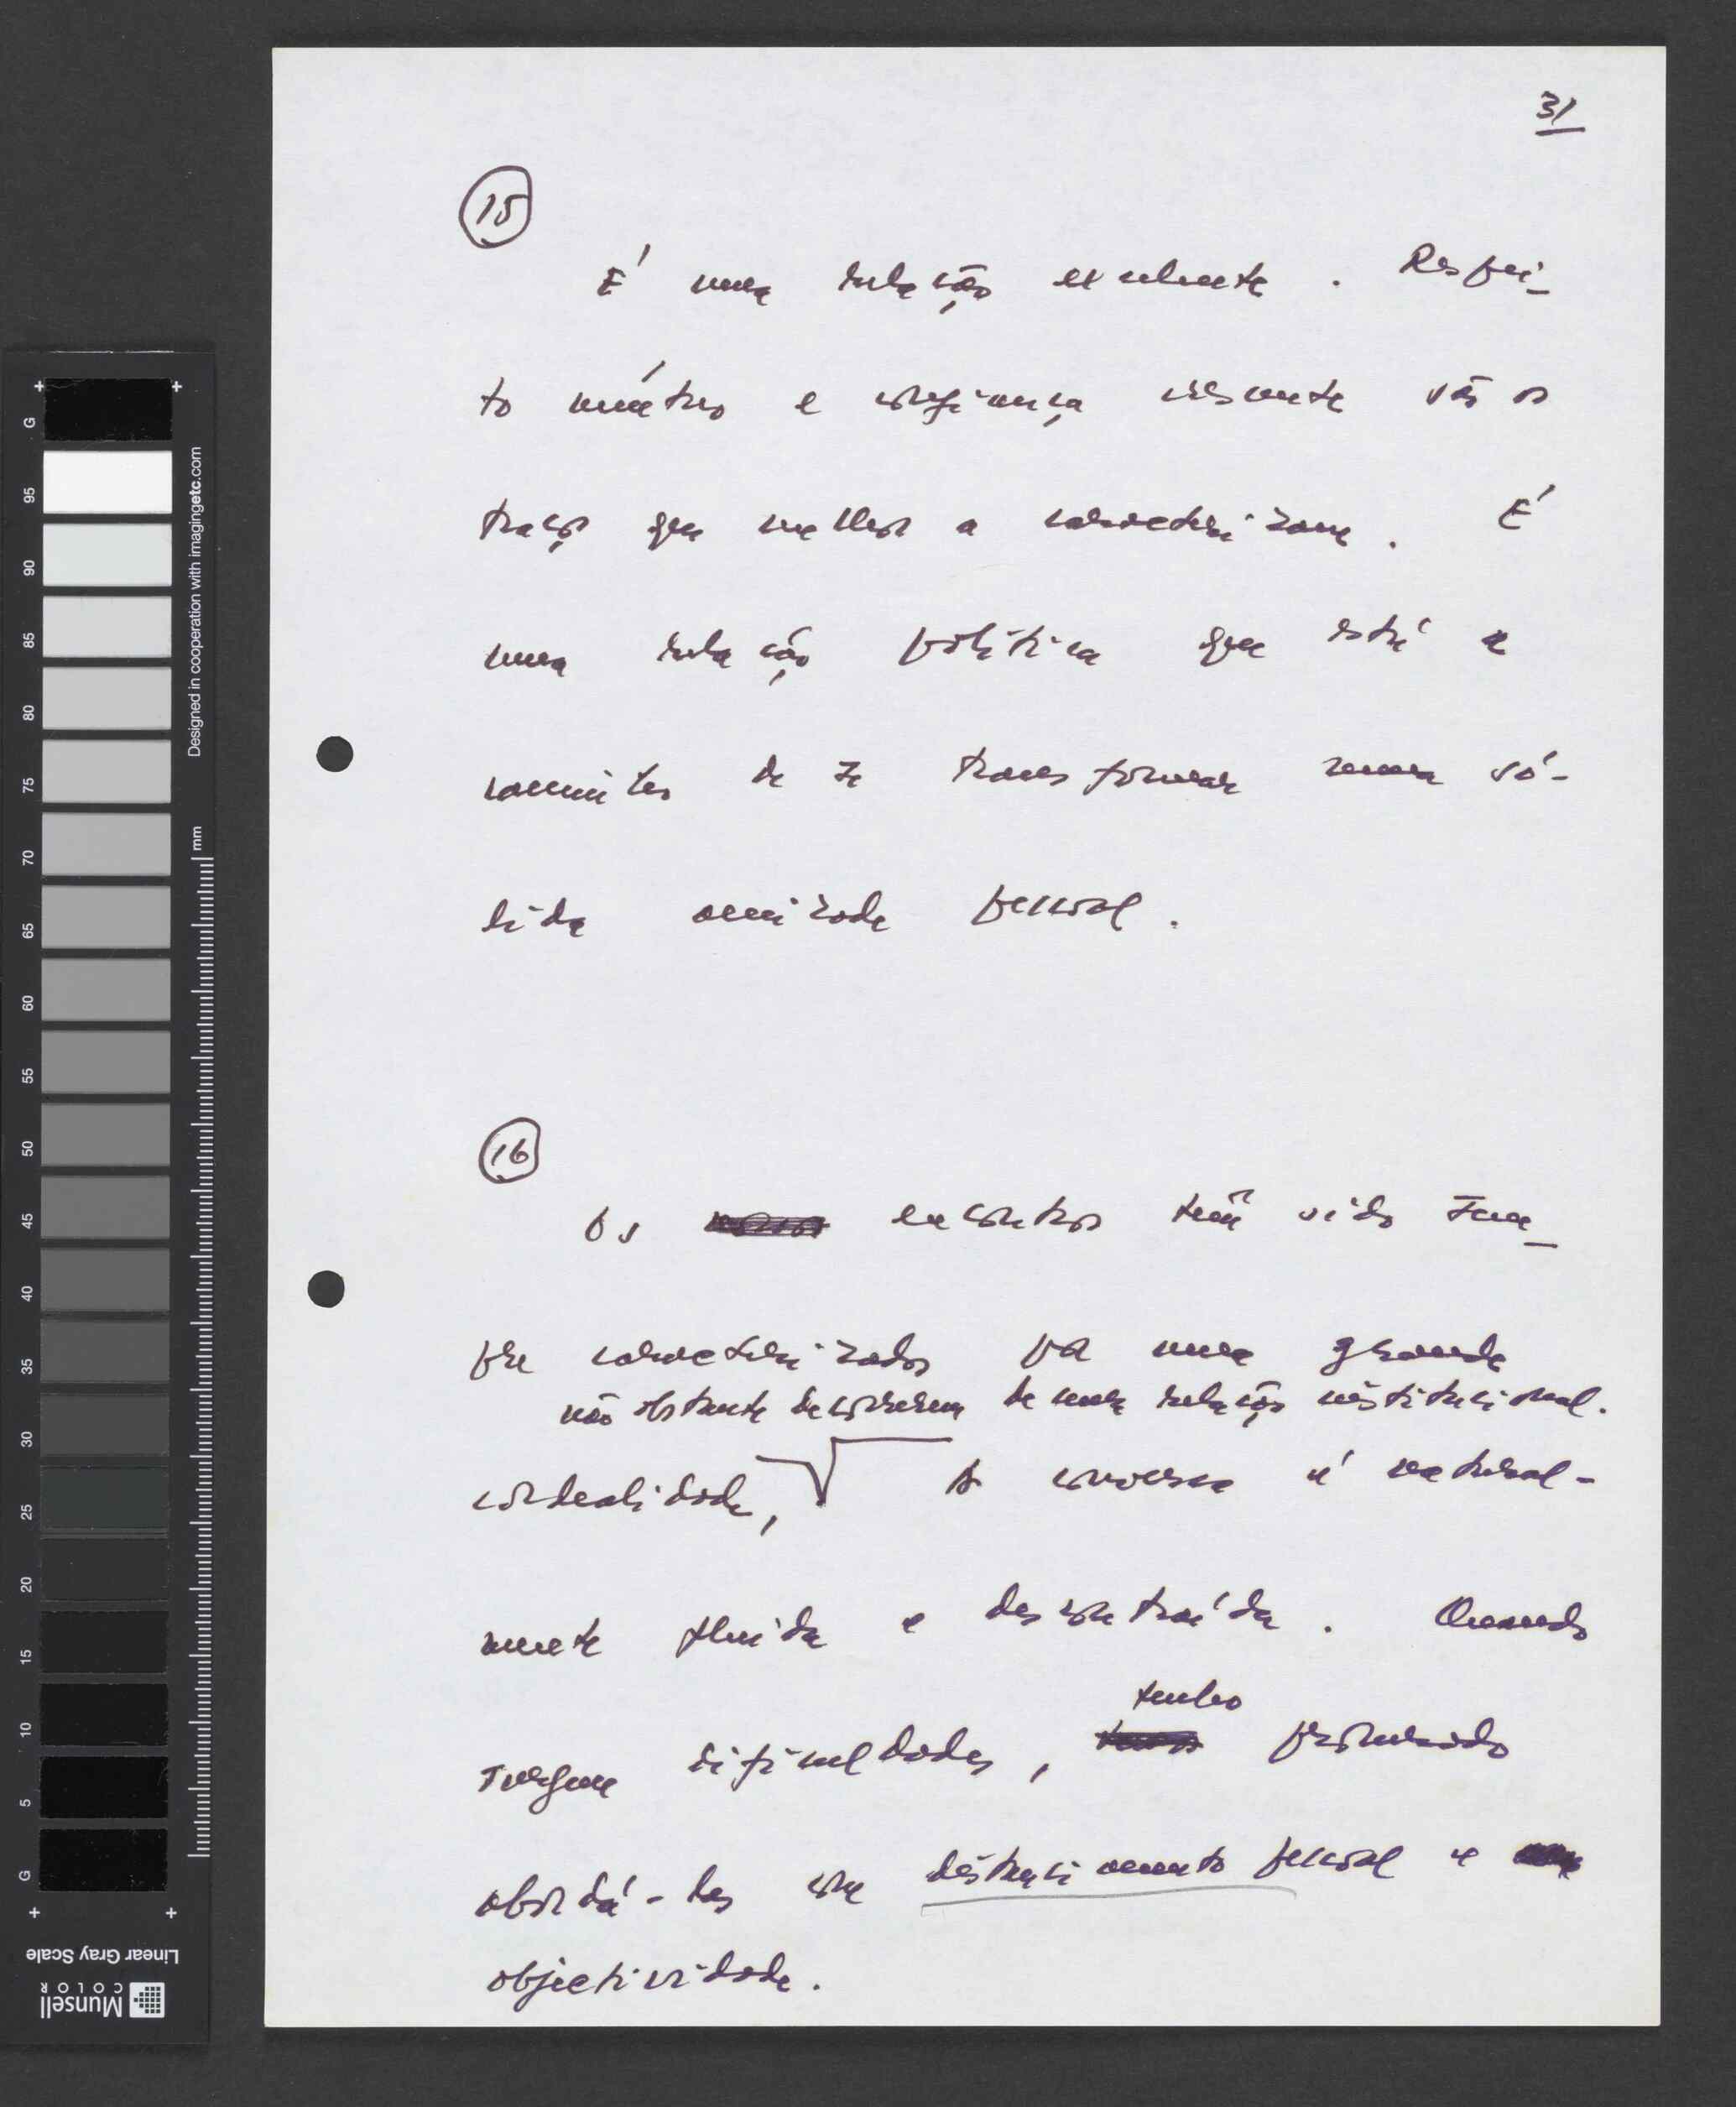 31
15
É uma relação excelente. Respei-
to mútuo e confiança crescente são os
traços que melhor a caracterizam. É
uma relação política que está a
caminho de se transformar numa só-
lida amizade pessoal.
16
Os encontros têm sido sem-
pre caracterizados por uma grande
não obstante decorrerem de uma relação institucional.
cordealidade, A conversa é natural-
mente fluida e descontraída. Quando
surgem dificuldades, tenho procurado
abordá-las com distanciamento pessoal e
objectividade.
G
95
90
85
80
75
70
65
60
55
50
45
40
35
30
25
20
15
10
5
G
Designed in cooperation with imagingetc.com
mm
Linear Gray Scale
Munsell
COLOR